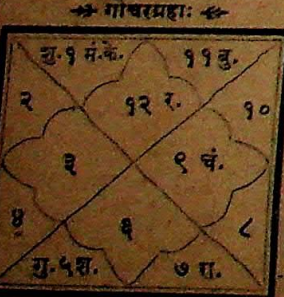 गोचरग्रहाः
शु. १ मं. के.
११ बु.
२
१२ र.
१०
३
९ चं.
४
६
८
गु. ५ श.
७ रा.